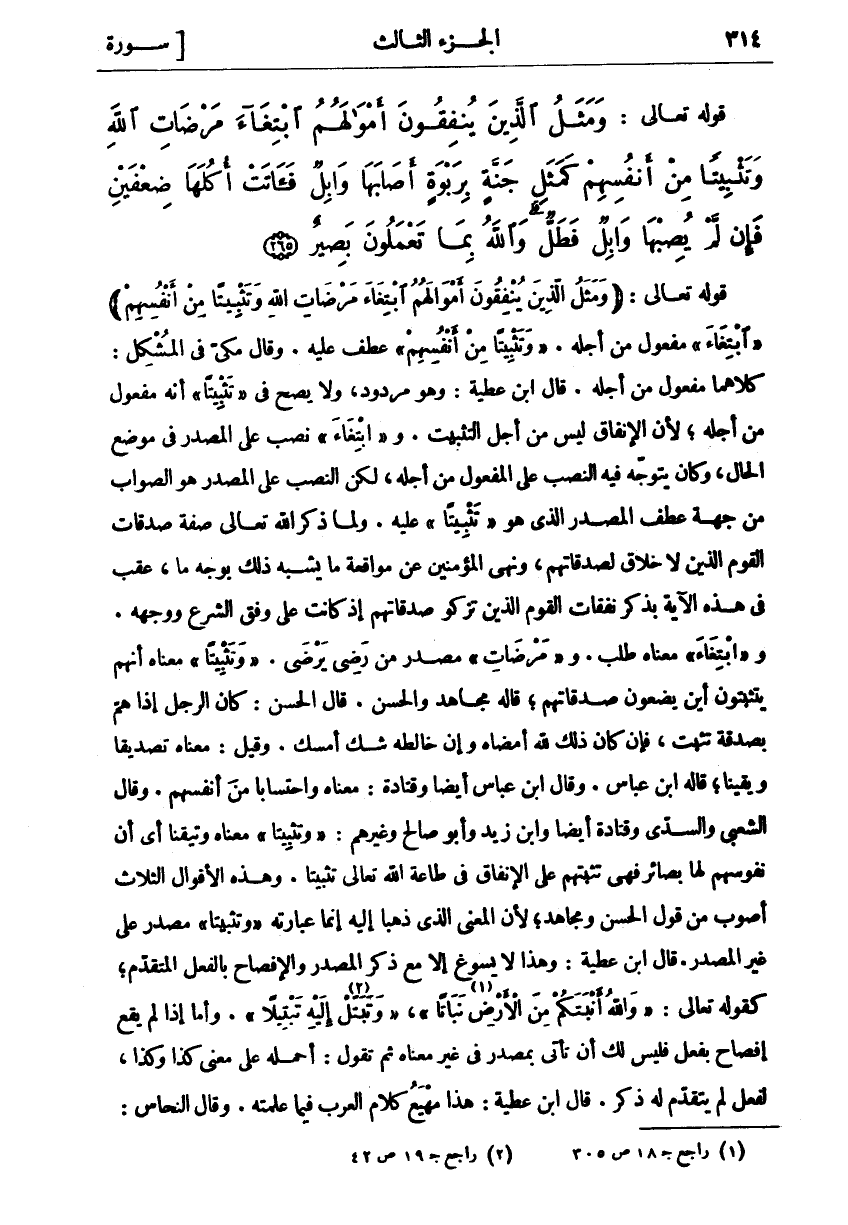 ٣١٤ الجـــزء الثـالث [ ســـورة
قوله تعـالى : وَمَثَـلُ ٱلَّذِينَ يُنفِقُـونَ أَمْوَٰلَهُـمُ ٱبْتِغَـآءَ مَرْضَاتِ ٱللَّهِ
وَتَثْبِيتًـا مِنْ أَنفُسِهِمْ كَمَثَلِ جَنَّةٍ بِرَبْوَةٍ أَصَابَهَا وَابِلٌ فَـَٔاتَتْ أُكُلَهَا ضِعْفَيْنِ
فَإِن لَّمْ يُصِبْهَا وَابِلٌ فَطَلٌّ وَٱللَّهُ بِمَـا تَعْمَلُونَ بَصِيرٌ ﴿٢٦٥﴾
قوله تعـالى : ﴿ وَمَثَلُ الَّذِينَ يُنْفِقُونَ أَمْوَالَهُمُ ٱبْتِغَاءَ مَرْضَاتِ اللهِ وَتَثْبِيتًا مِنْ أَنْفُسِهِمْ ﴾
« ٱبْتِغَاءَ » مفعول من أجله . « وَتَثْبِيتًا مِنْ أَنْفُسِهِمْ » عطف عليه . وقال مكىّ فى المُشْكِل :
كلاهما مفعول من أجله . قال ابن عطية : وهو مردود، ولا يصح فى « تَثْبِيتًا » أنه مفعول
من أجله ؛ لأن الإنفاق ليس من أجل التثبيت . و « ابْتِغَاءَ » نصب على المصدر فى موضع
الحال، وكان يتوجّه فيه النصب على المفعول من أجله ، لكن النصب على المصدر هو الصواب
من جهــة عطف المصــدر الذى هو « تَثْبِيتًا » عليه . ولمـا ذكر الله تعـالى صفة صدقات
القوم الذين لا خلاق لصدقاتهم ، ونهى المؤمنين عن مواقعة ما يشـبه ذلك بوجه ما ، عقب
فى هـذه الآية بذكر نفقات القوم الذين تزكو صدقاتهم إذ كانت على وفق الشرع ووجهه .
و «ابْتِغَاءَ» معناه طلب . و « مَرْضَاتِ » مصدر من رَضِى يَرْضَى . « وَتَثْبِيتًا » معناه أنهم
يتثبتون أين يضعون صـدقاتهم ؛ قاله مجـاهد والحسن . قال الحسن : كان الرجل إذا همّ
بصدقة تثبت ، فإن كان ذلك لله أمضاه و إن خالطه شـك أمسك . وقيل : معناه تصديقا
و يقينا؛ قاله ابن عباس . وقال ابن عباس أيضا وقتادة : معناه واحتسابا من أنفسهم . وقال
الشعبي والسـدّى وقتادة أيضا وابن زيد وأبو صالح وغيرهم : « وتثبيتا » معناه وتيقنا أى أن
نفوسهم لها بصائر فهى تثبتهم على الإنفاق فى طاعة الله تعالى تثبيتا . وهـذه الأقوال الثلاث
أصوب من قول الحسن ومجاهد؛ لأن المعنى الذى ذهبا إليه إنما عبارته «وتثبيتا» مصدر على
غير المصدر. قال ابن عطية : وهذا لا يسوغ إلا مع ذكر المصدر والإفصاح بالفعل المتقدّم؛
كقوله تعالى : « وَاللهُ أَنْبَتَكُمْ مِنَ الْأَرْضِ نَبَاتًا (١) »، « وَتَبَتَّلْ إِلَيْهِ تَبْتِيلًا (٢) » . وأما إذا لم يقع
إفصاح بفعل فليس لك أن تأتى بمصدر فى غير معناه ثم تقول : أحمـله على معنى كذا وكذا ،
لفعل لم يتقدّم له ذكر . قال ابن عطية : هذا مَهْيَعُ كلام العرب فيما علمته . وقال النحاس :
(١) راجع جـ ١٨ ص ٣٠٥ (٢) راجع جـ ١٩ ص ٤٢